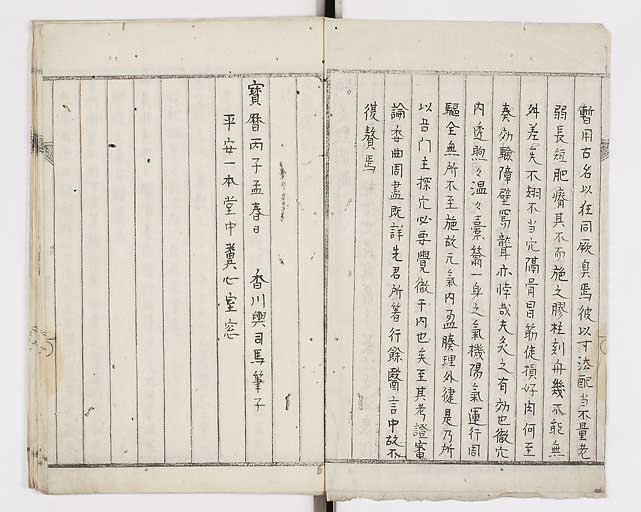 暫用古名以往同厥臭焉彼以寸法配当不量老
弱長短肥瘠其不而施之膠柱刻舟幾不能無
舛差矣不翅不当穴隔骨冒筋徒損好肉何至
奏効験障壁写聾亦悖哉夫灸之有効也徹穴
内透煦々温々橐籥一身之気機陽気運行周
駆全無所不至施故元気内盈腠理外健是乃所
以吾門主探穴必要覺徹于内也矣至其考證審
論委曲周盡既詳先君所著行餘醫言中故不
復贅焉
寶暦丙子孟春日 香川輿司馬筆于
平安一本堂中養心室窓